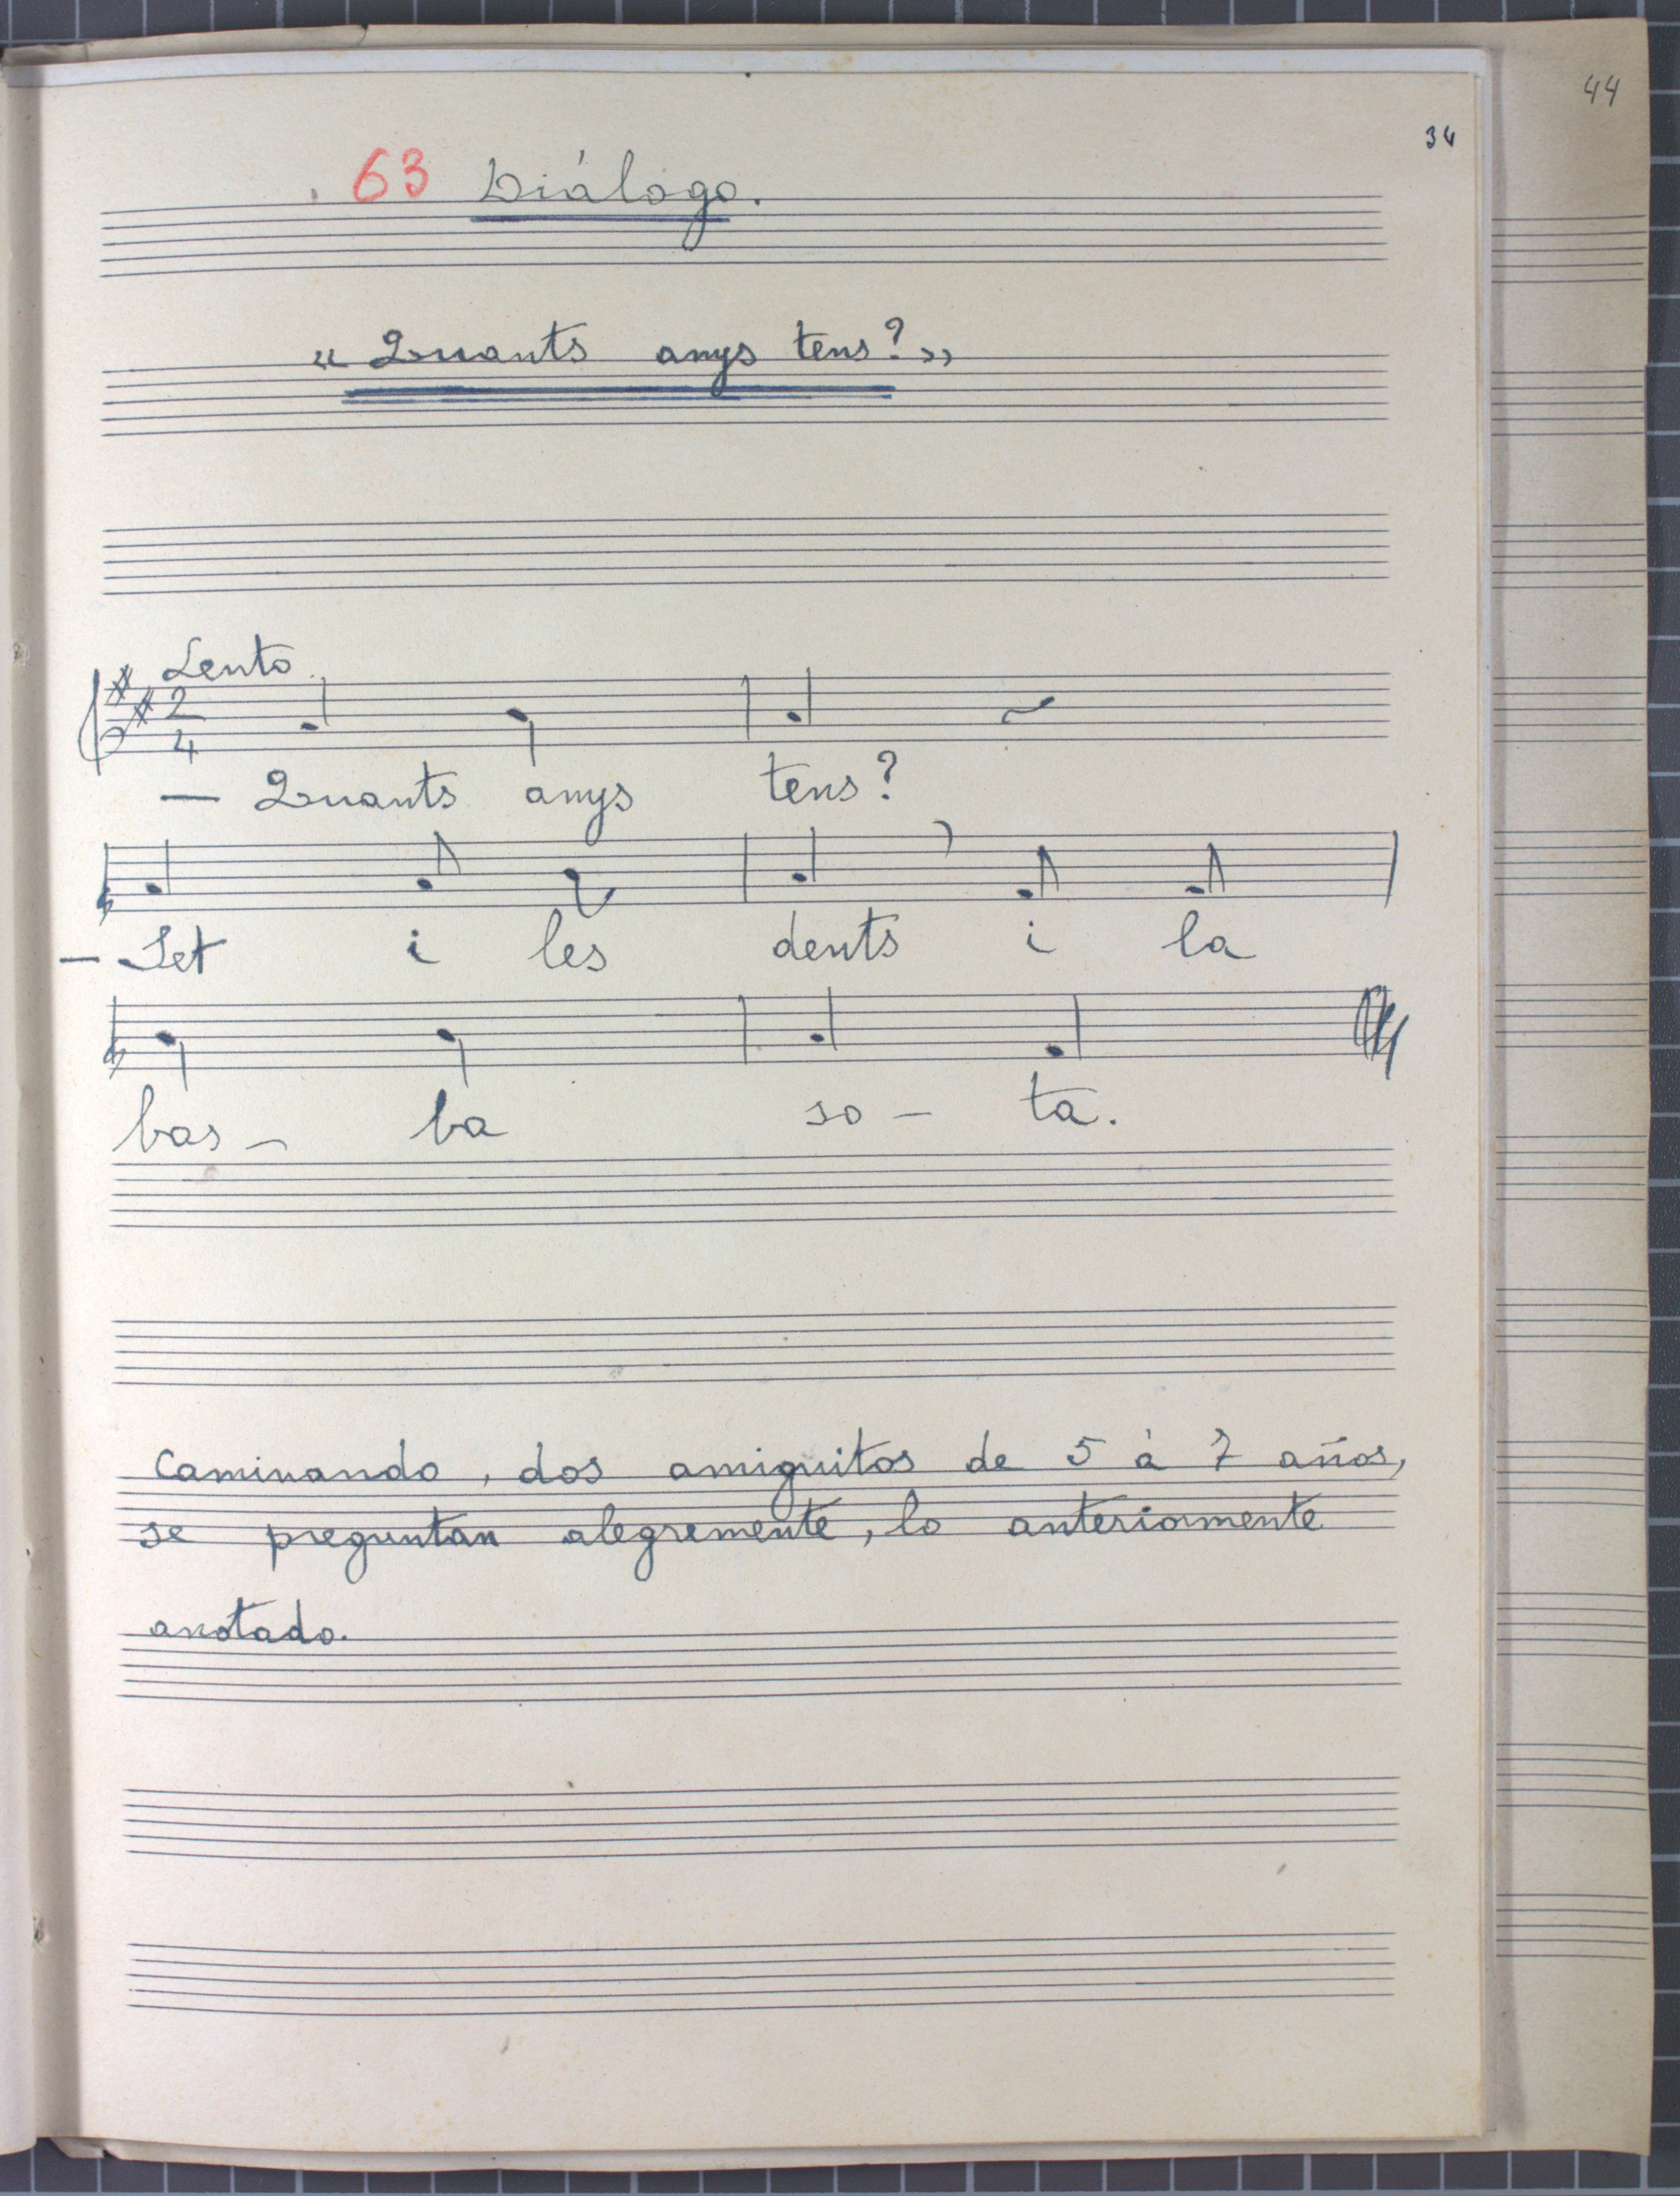 44
34
63 Diálogo.
« Quants anys tens? »
Lento.
2
4
— Quants anys tens?
— Set i les dents i la
bar- ba so - ta.
Caminando, dos amiguitos de 5 à 7 años,
se preguntan alegremente, lo anteriormente
anotado.